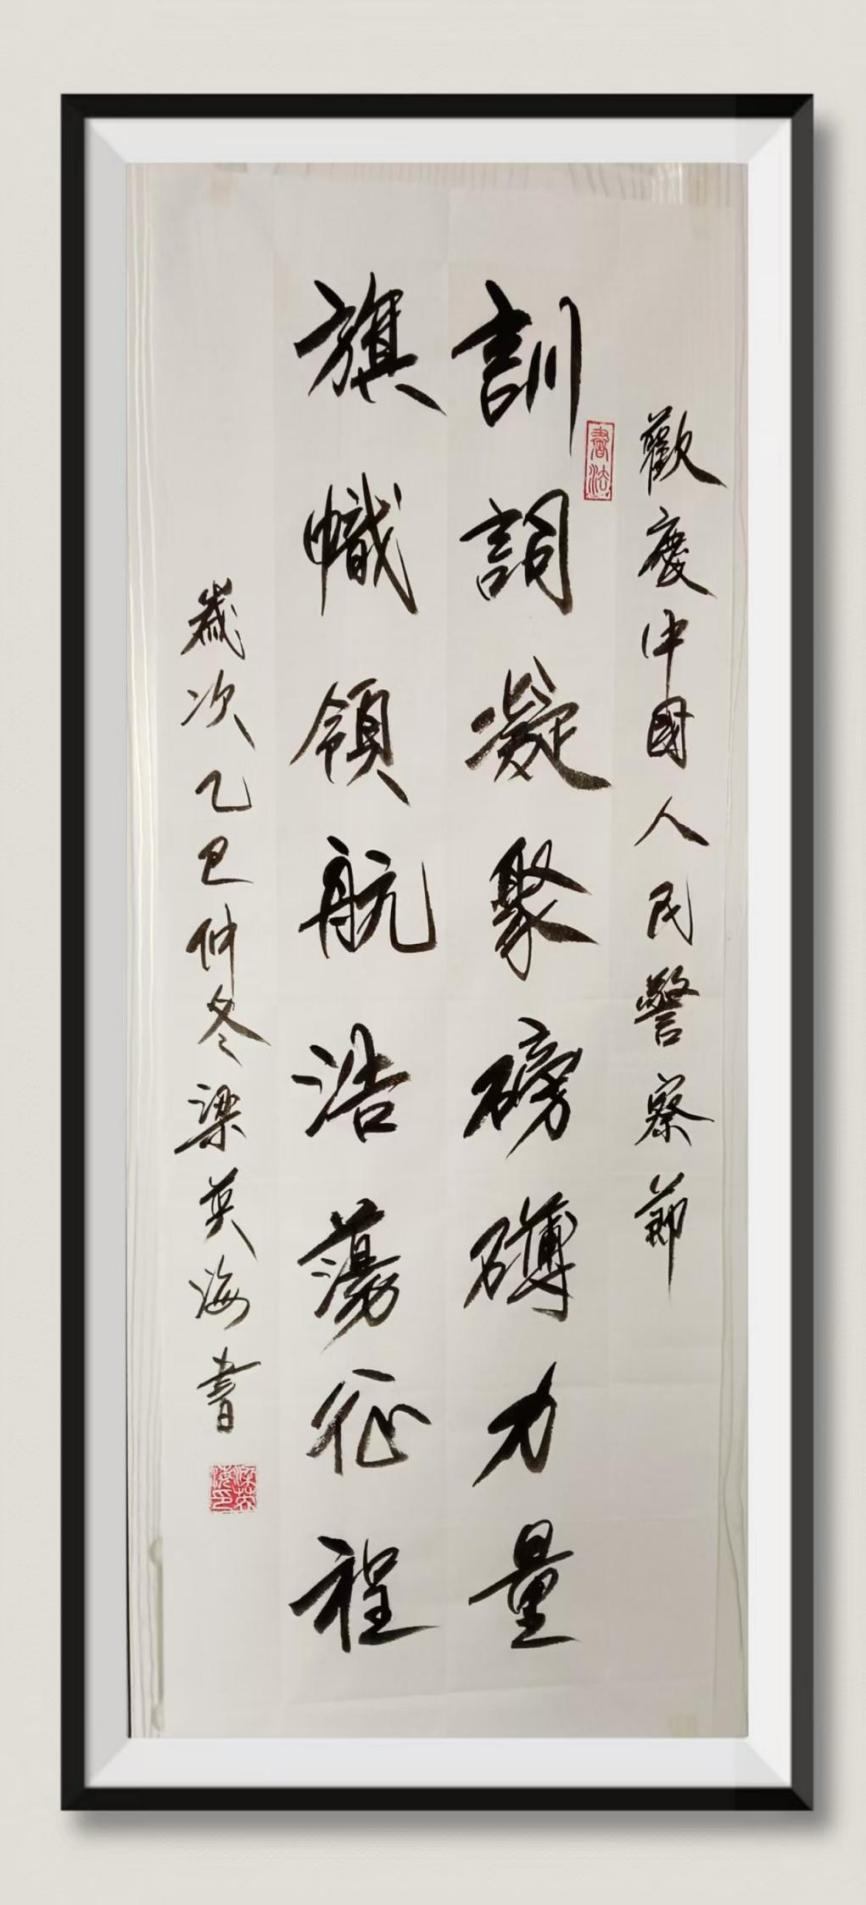 歡慶中國人民警察節
書法
訓詞凝聚磅礴力量
旗幟領航浩蕩征程
歲次乙巳仲冬梁英海書
梁英海印